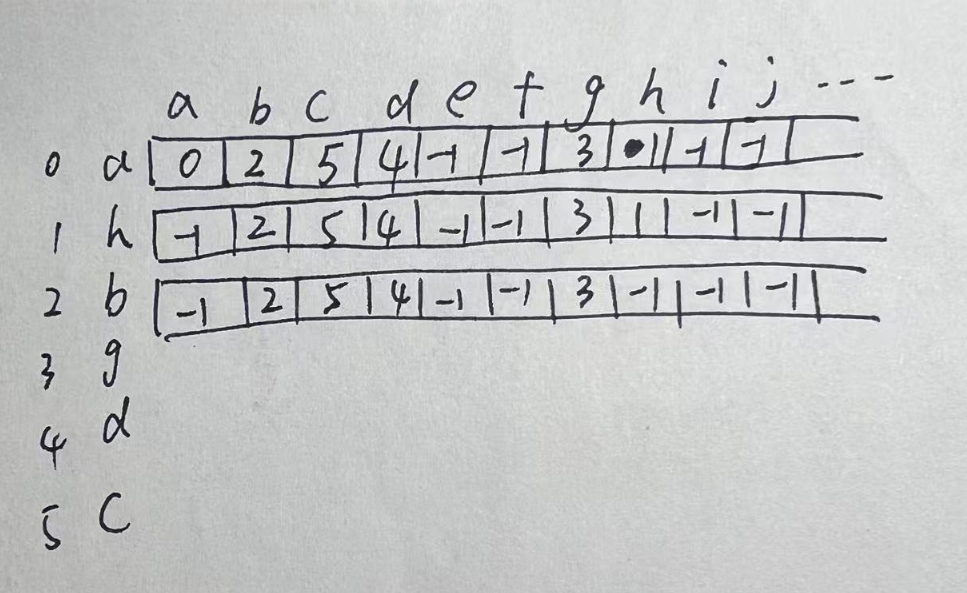 a b c d e f g h i j ---
0 a 0 2 5 4 -1 -1 3 1 -1 -1
1 h -1 2 5 4 -1 -1 3 1 -1 -1
2 b -1 2 5 4 -1 -1 3 -1 -1 -1
3 g
4 d
5 c